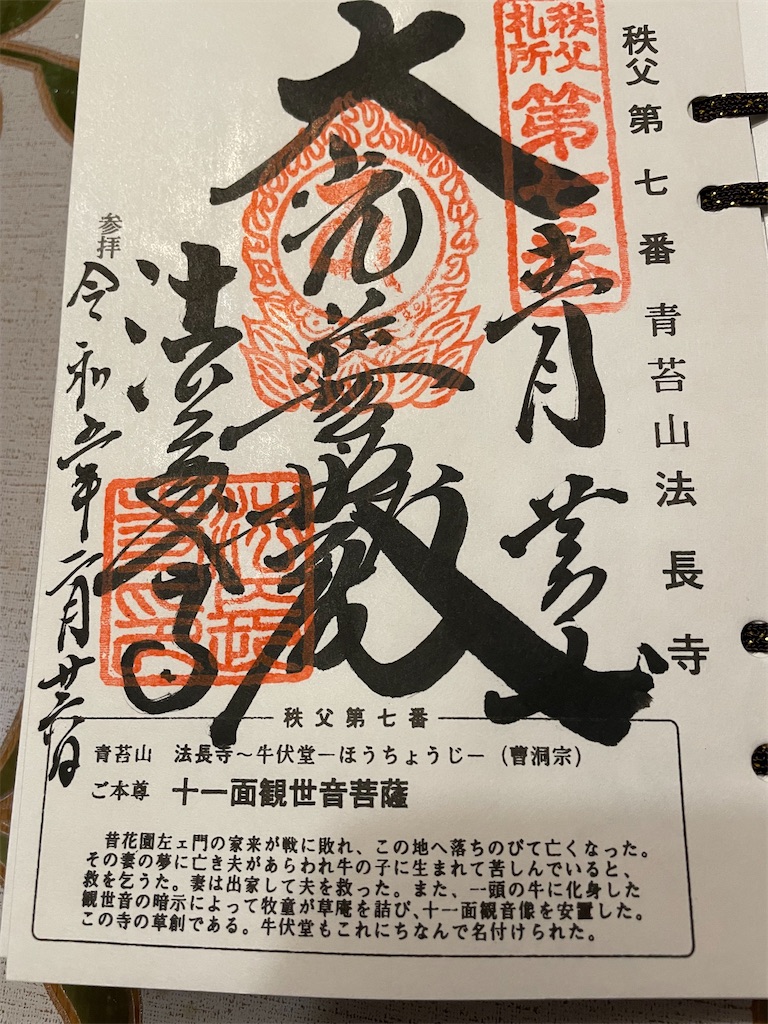 秩父第七番 青苔山法長寺
秩父
札所
第七番
青苔山
大光普照殿
法長寺
参拝
令和五年二月廿六日
秩父第七番
青苔山 法長寺～牛伏堂－ほうちょうじ－(曹洞宗)
ご本尊 十一面観世音菩薩
昔花園左ェ門の家来が戦に敗れ、この地へ落ちのびて亡くなった。
その妻の夢に亡き夫があらわれ牛の子に生まれて苦しんでいると、
救を乞うた。妻は出家して夫を救った。また、一頭の牛に化身した
観世音の暗示によって牧童が草庵を詰び、十一面観音像を安置した。
この寺の草創である。牛伏堂もこれにちなんで名付けられた。